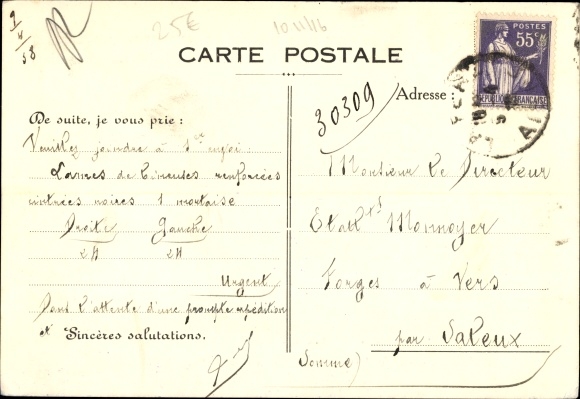 9
4
38
25€
10 11/16
CARTE POSTALE
POSTES
55c
REPUBLIQUE FRANÇAISE
30309
Adresse :
De suite, je vous prie :
Veuillez joindre à 1er envoi :
Lames de Cineuses renforcées
cintrées noires 1 mortaise
Droite Gauche
24 24
Urgent
Dans l'attente d'une prompte expédition
et Sincères salutations.
Monsieur Le Directeur
Etabts Monnoyer
Forges à Vers
par Saleux
(Somme)